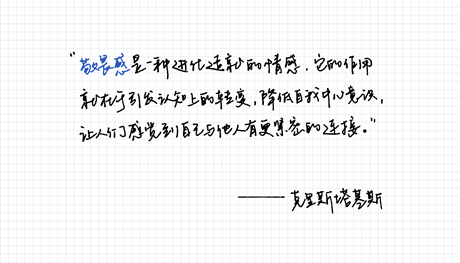 “敬畏感是一种进化造就的情感，它的作用
就在于引发认知上的转变，降低自我中心意识，
让人们感觉到自己与他人有更紧密的连接。”
——克里斯塔基斯